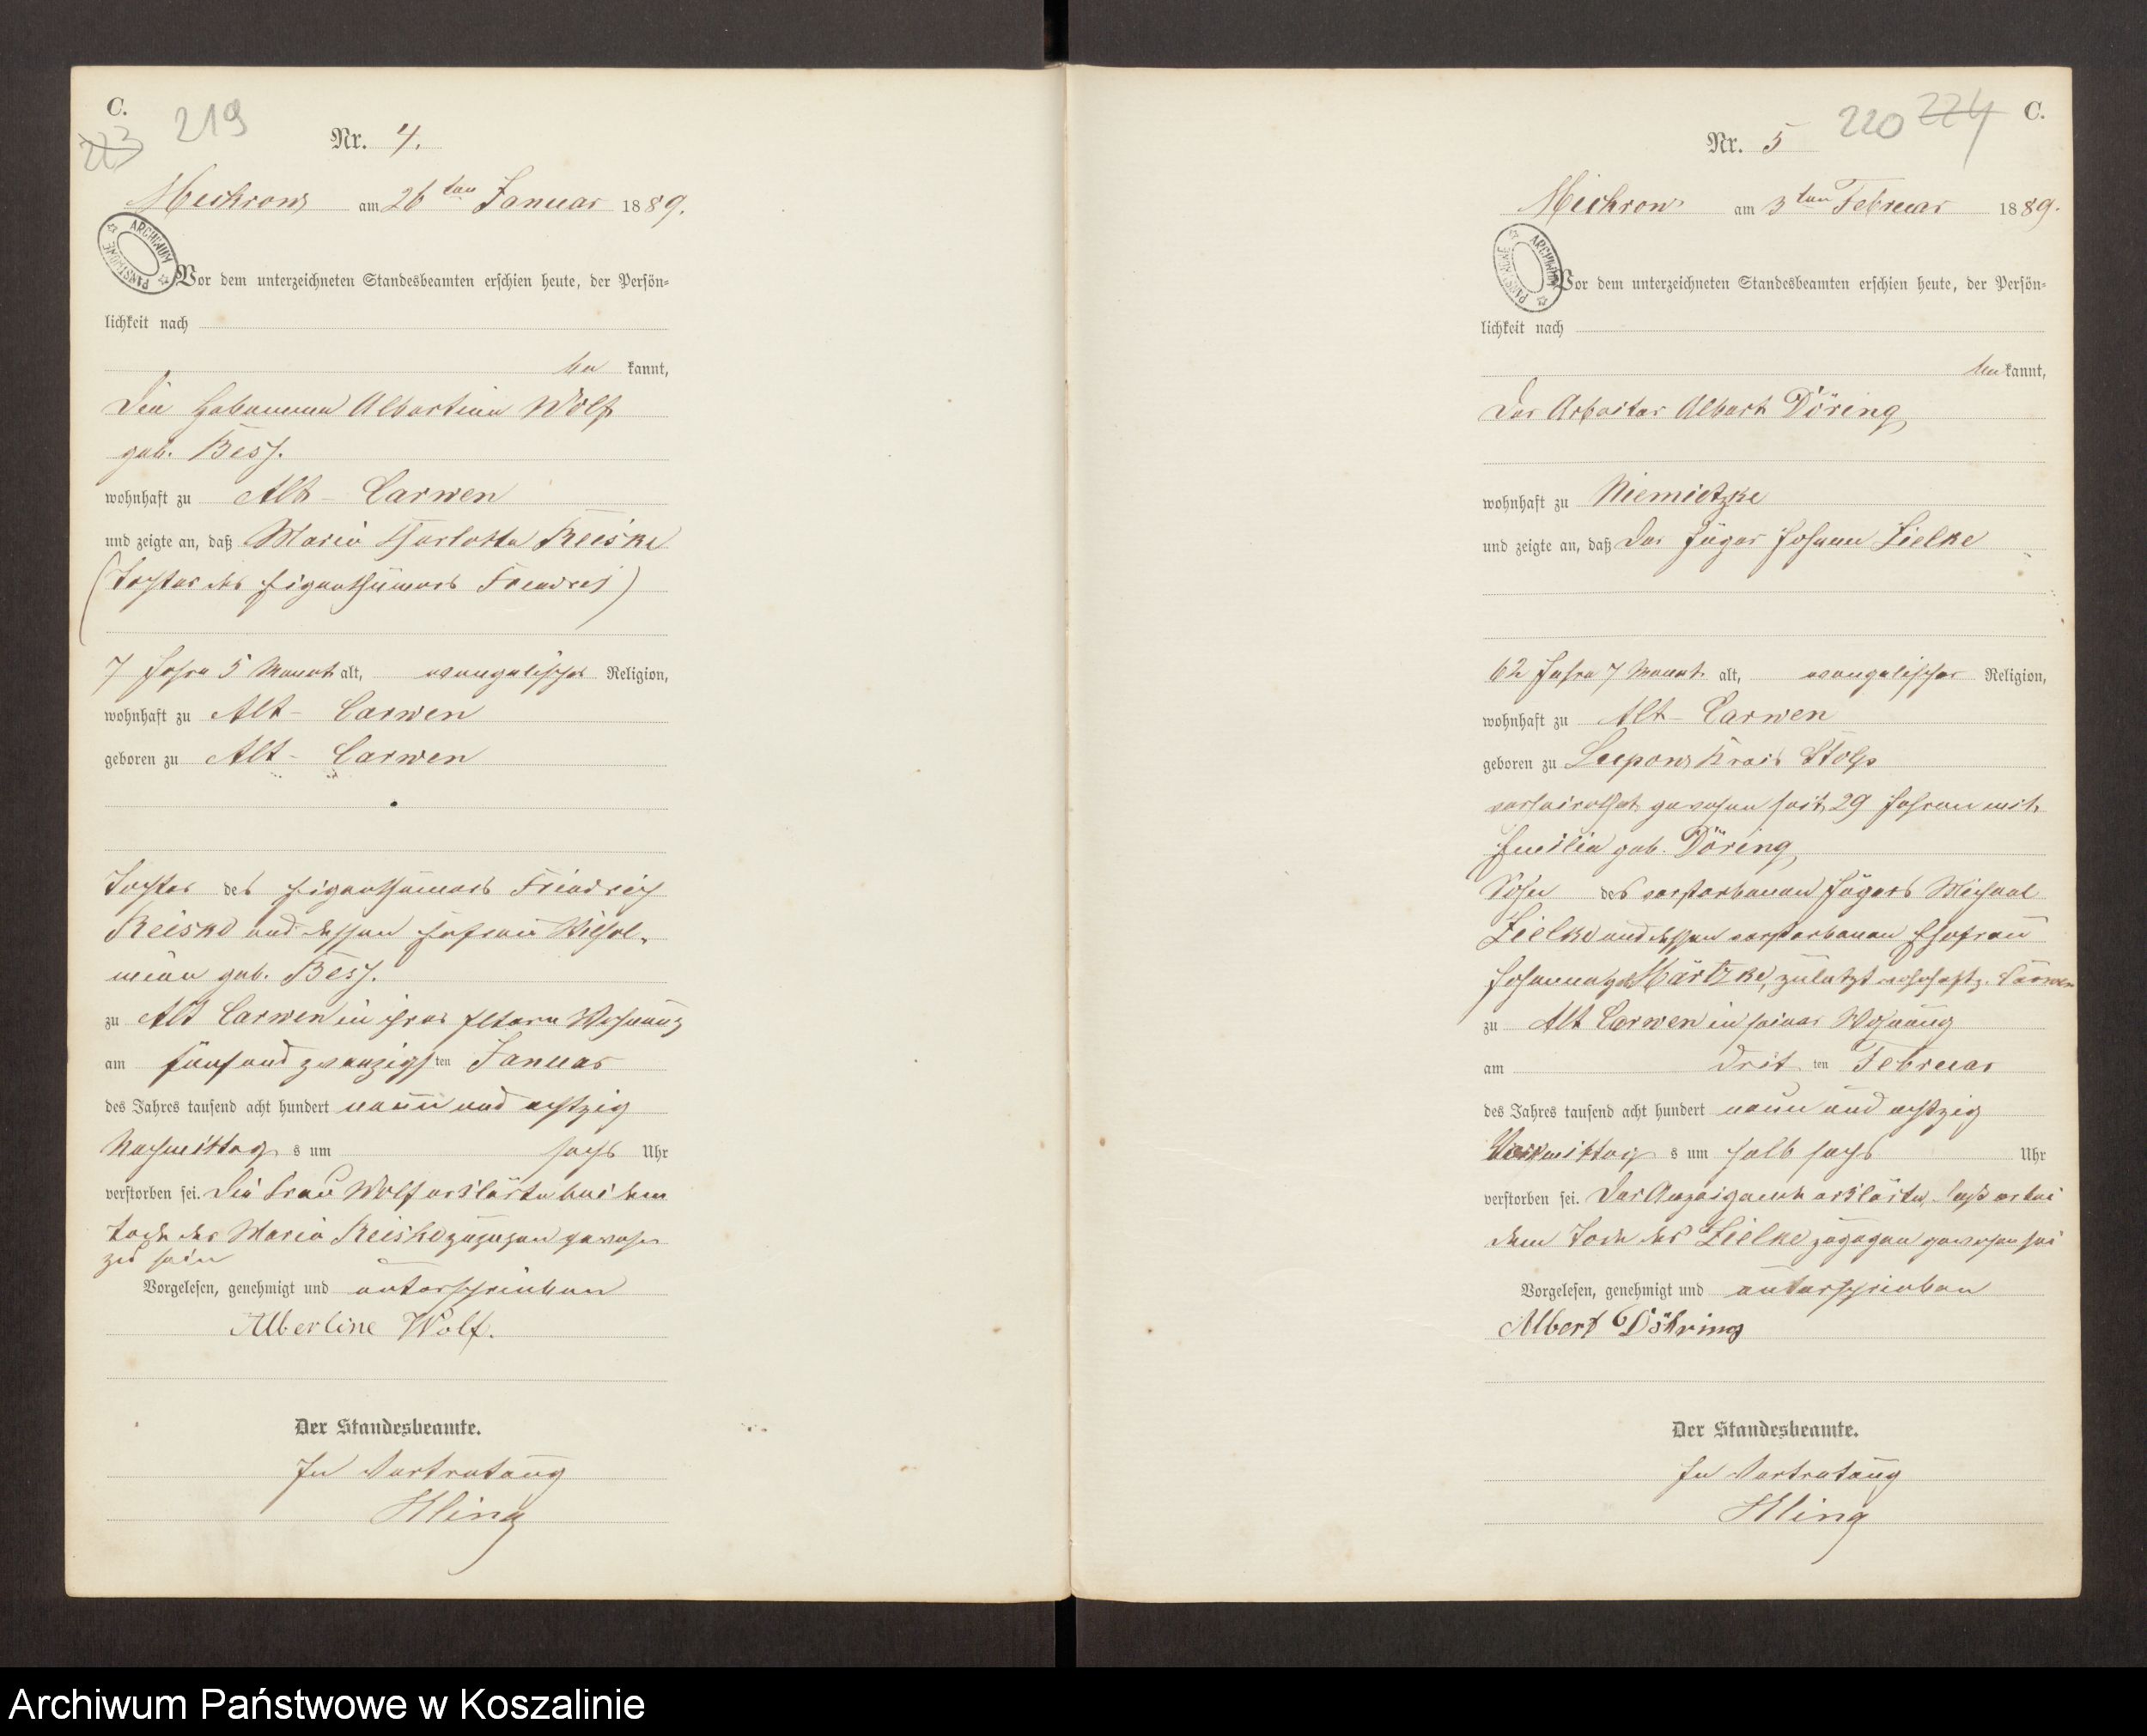 C.
219
223
Nr. 4.
Mickrow am 26ten Januar 1889.
ARCHIWUM PAŃSTWOWE
Vor dem unterzeichneten Standesbeamten erschien heute, der Persön-
lichkeit nach
be kannt,
die Hebamme Albertine Wolf
geb. Besch.
wohnhaft zu Alt-Carwen
und zeigte an, daß Marie Charlotte Reiske
(Tochter des Eigenthümers Friedrich)
7 Jahre 5 Monat alt, evangelischer Religion,
wohnhaft zu Alt-Carwen
geboren zu Alt-Carwen
Tochter des Eigenthümers Friedrich
Reiske und dessen Ehefrau Wilhel-
mine geb. Besch.
zu Alt Carwen in ihrer Eltern Wohnung
am fünfundzwanzigsten Januar
des Jahres tausend acht hundert neun und achtzig
Nachmittags um sechs Uhr
verstorben sei. Die Frau Wolf erklärte bei dem
Tode der Marie Reiske zugegen gewesen
zu sein
Vorgelesen, genehmigt und unterschrieben
Albertine Wolf.
Der Standesbeamte.
In Vertretung
Kling
220 224 C.
Nr. 5
Mickrow am 3ten Februar 1889.
ARCHIWUM PAŃSTWOWE
Vor dem unterzeichneten Standesbeamten erschien heute, der Persön-
lichkeit nach
be kannt,
der Arbeiter Albert Döring
wohnhaft zu Niemietzke
und zeigte an, daß der Jäger Johann Zielke
62 Jahre 7 Monat alt, evangelischer Religion,
wohnhaft zu Alt-Carwen
geboren zu Lupow Kreis Stolp
verheirathet gewesen seit 29 Jahren mit
Emilie geb. Döring
Sohn des verstorbenen Jägers Michael
Zielke und dessen verstorbenen Ehefrau
Johanna geb. Märtzke, zuletzt wohnhaft z. Carwen
zu Alt Carwen in seiner Wohnung
am dritten Februar
des Jahres tausend acht hundert neun und achtzig
Vormittags um halb sechs Uhr
verstorben sei. Der Anzeigende erklärte, daß er bei
dem Tode des Zielke zugegen gewesen sei
Vorgelesen, genehmigt und unterschrieben
Albert Döhring
Der Standesbeamte.
In Vertretung
Kling
Archiwum Państwowe w Koszalinie